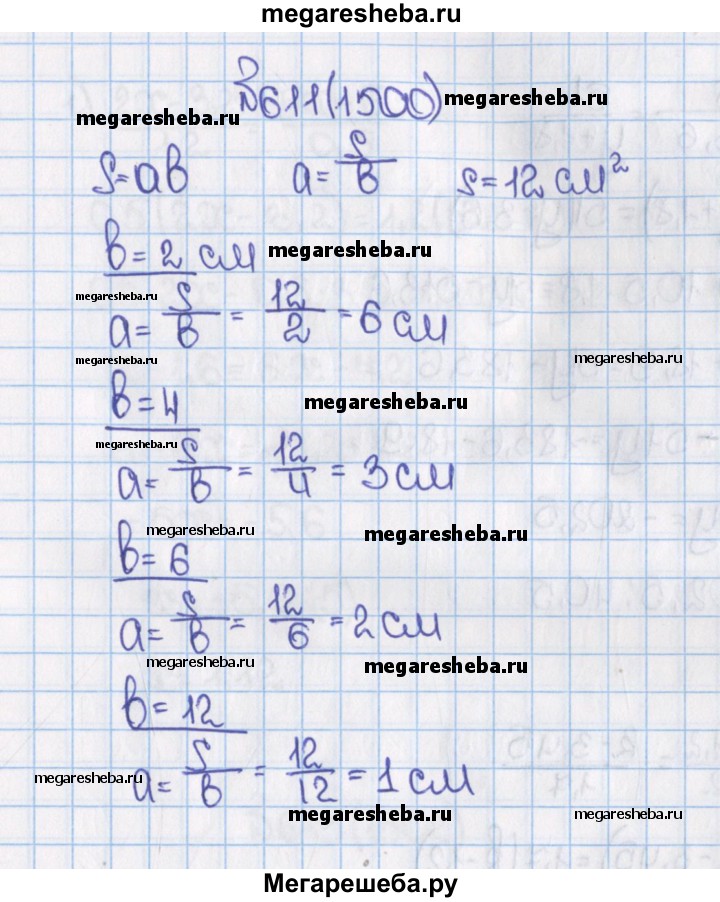 megaresheba.ru
№611(1500) megaresheba.ru
megaresheba.ru
S=ab a=S/b S=12 см²
b=2 см megaresheba.ru
megaresheba.ru
a=S/b=12/2=6 см
megaresheba.ru
megaresheba.ru
b=4 megaresheba.ru
megaresheba.ru
a=S/b=12/4=3 см
megaresheba.ru megaresheba.ru
b=6
a=S/b=12/6=2 см
megaresheba.ru megaresheba.ru
b=12
a=S/b=12/12=1 см
megaresheba.ru
megaresheba.ru
Мегарешеба.ру